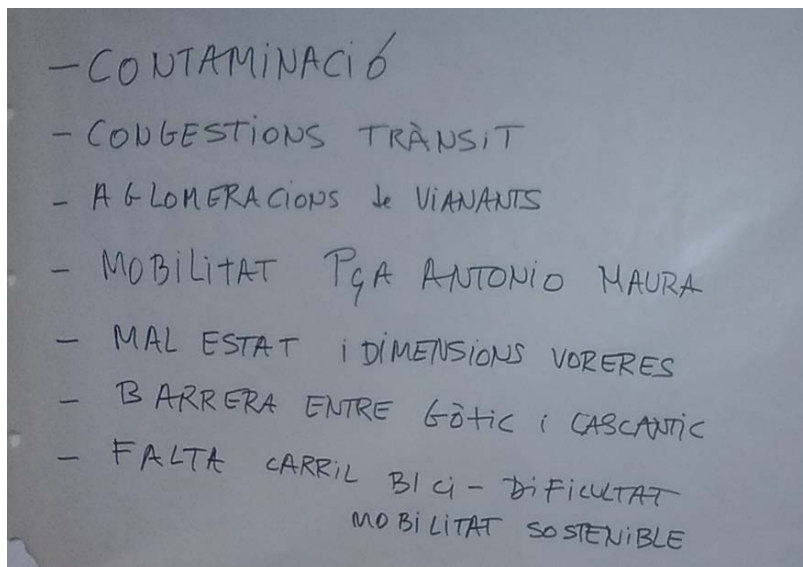 - CONTAMINACIÓ
- CONGESTIONS TRÀNSIT
- AGLOMERACIONS de VIANANTS
- MOBILITAT PçA ANTONIO MAURA
- MAL ESTAT i DIMENSIONS VORERES
- BARRERA ENTRE GÒTIC i CASC ANTIC
- FALTA CARRIL BICI - DIFICULTAT
MOBILITAT SOSTENIBLE